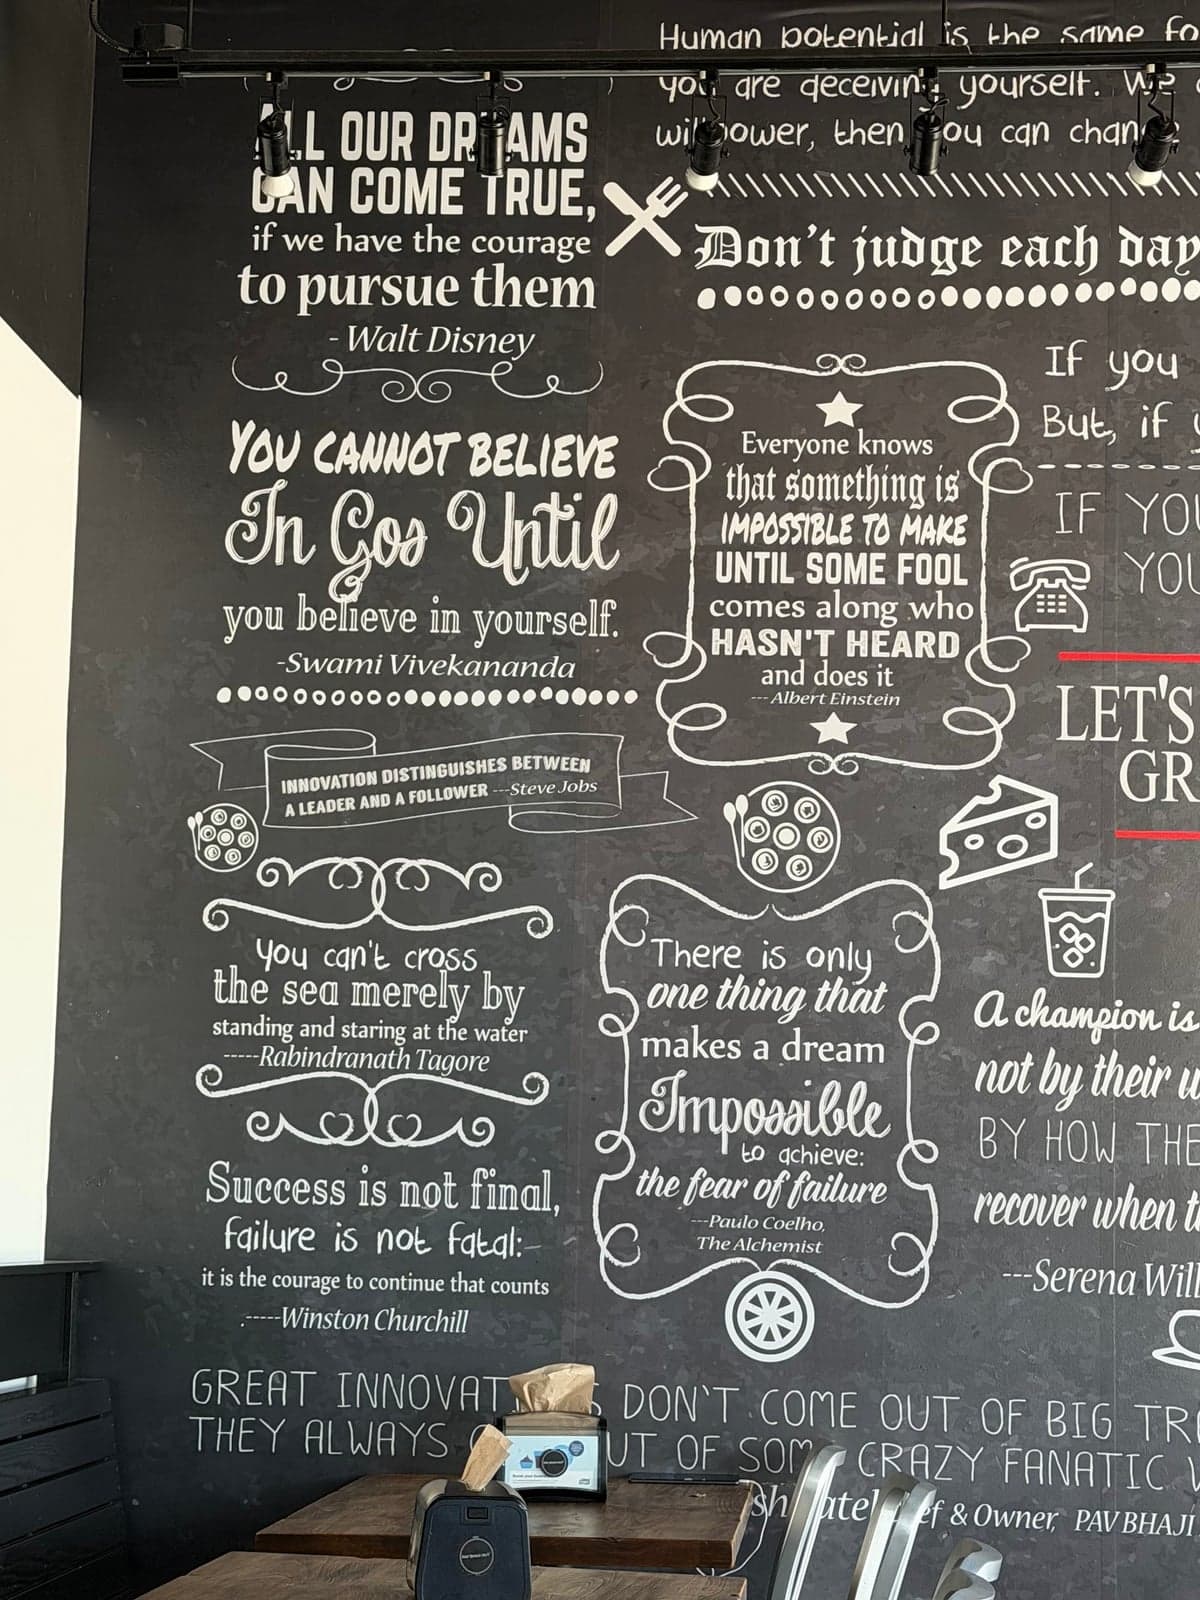 ALL OUR DREAMS
CAN COME TRUE,
if we have the courage
to pursue them
- Walt Disney
YOU CANNOT BELIEVE
In Gos Until
you believe in yourself.
-Swami Vivekananda
INNOVATION DISTINGUISHES BETWEEN
A LEADER AND A FOLLOWER ---Steve Jobs
You can't cross
the sea merely by
standing and staring at the water
-----Rabindranath Tagore
Success is not final,
failure is not fatal:-
it is the courage to continue that counts
.-----Winston Churchill
Human potential is the same fo
you are deceiving yourself. We
willpower, then you can change
Don't judge each day
Everyone knows
that something is
IMPOSSIBLE TO MAKE
UNTIL SOME FOOL
comes along who
HASN'T HEARD
and does it
--- Albert Einstein
If you
But, if
IF YO
YOU
LET'S
GR
There is only
one thing that
makes a dream
Impossible
to achieve:
the fear of failure
---Paulo Coelho,
The Alchemist
A champion is
not by their w
BY HOW THE
recover when t
---Serena Will
GREAT INNOVAT S DON'T COME OUT OF BIG TR
THEY ALWAYS OUT OF SOM CRAZY FANATIC
sh atel ef & Owner, PAV BHAJI